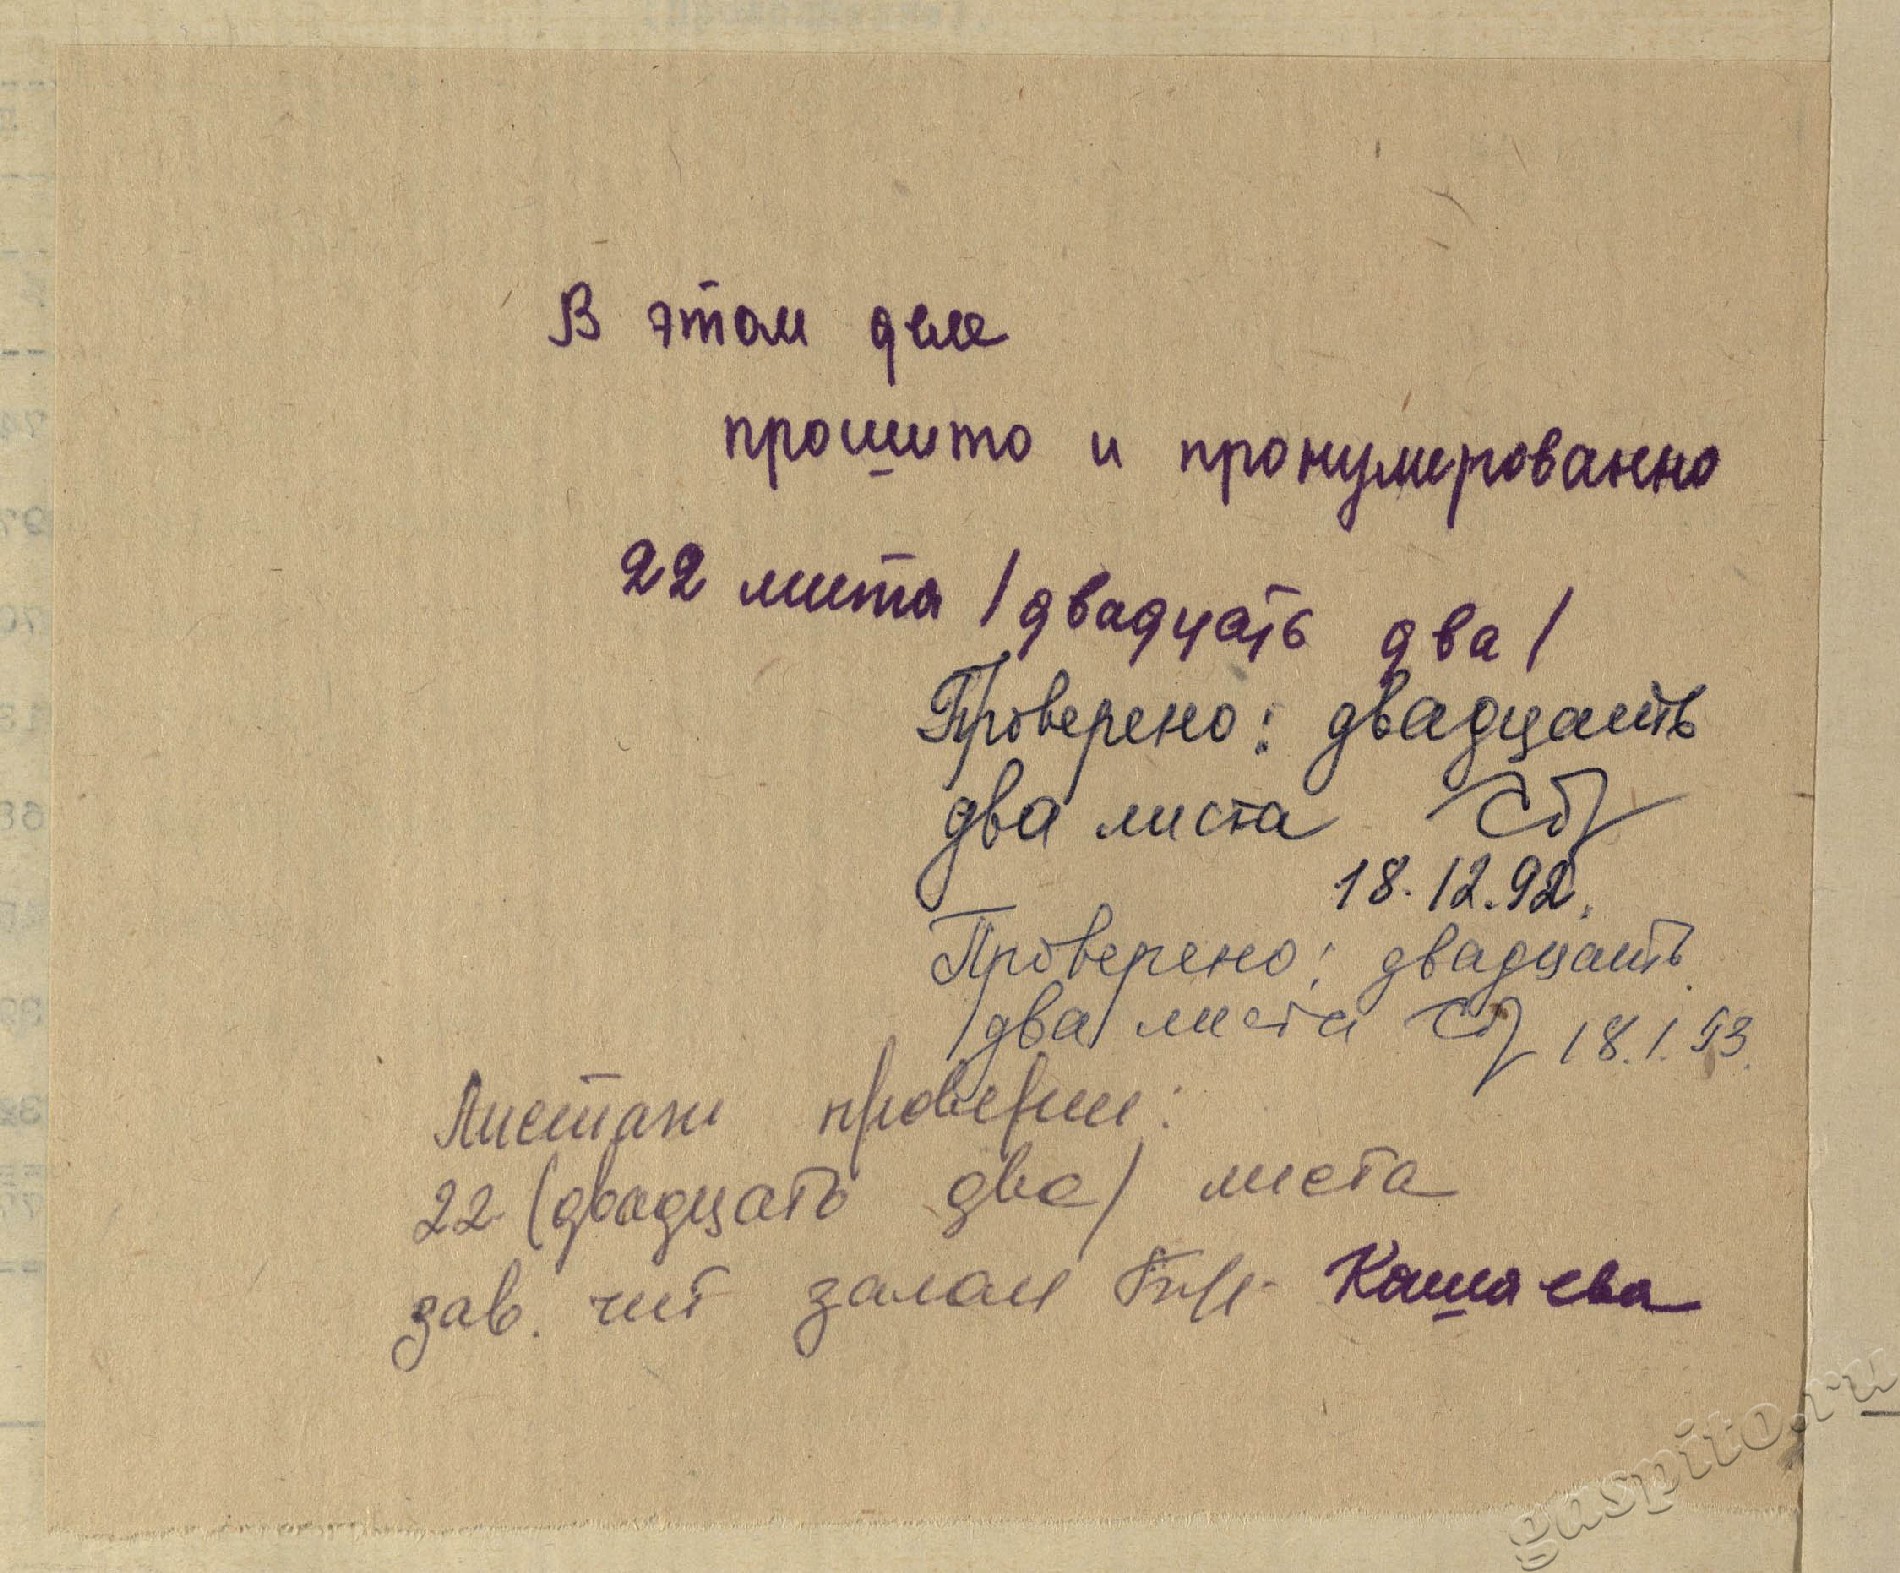 В этом деле
прошито и пронумерованно
22 листа /двадцать два/
Проверено: двадцать
два листа
18.12.92.
Проверено: двадцать
/два/ листа 18.1.93.
Листаж проверен:
22 (двадцать два) листа
зав. чит залом Кашаева
gaspito.ru